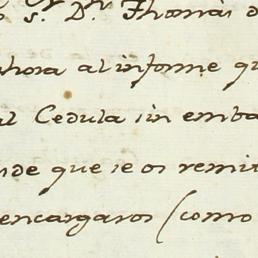 s.r D.n Thomás d
ahora al informe qu
al Cedula sin emba
nde que se os remit
encargaros (como